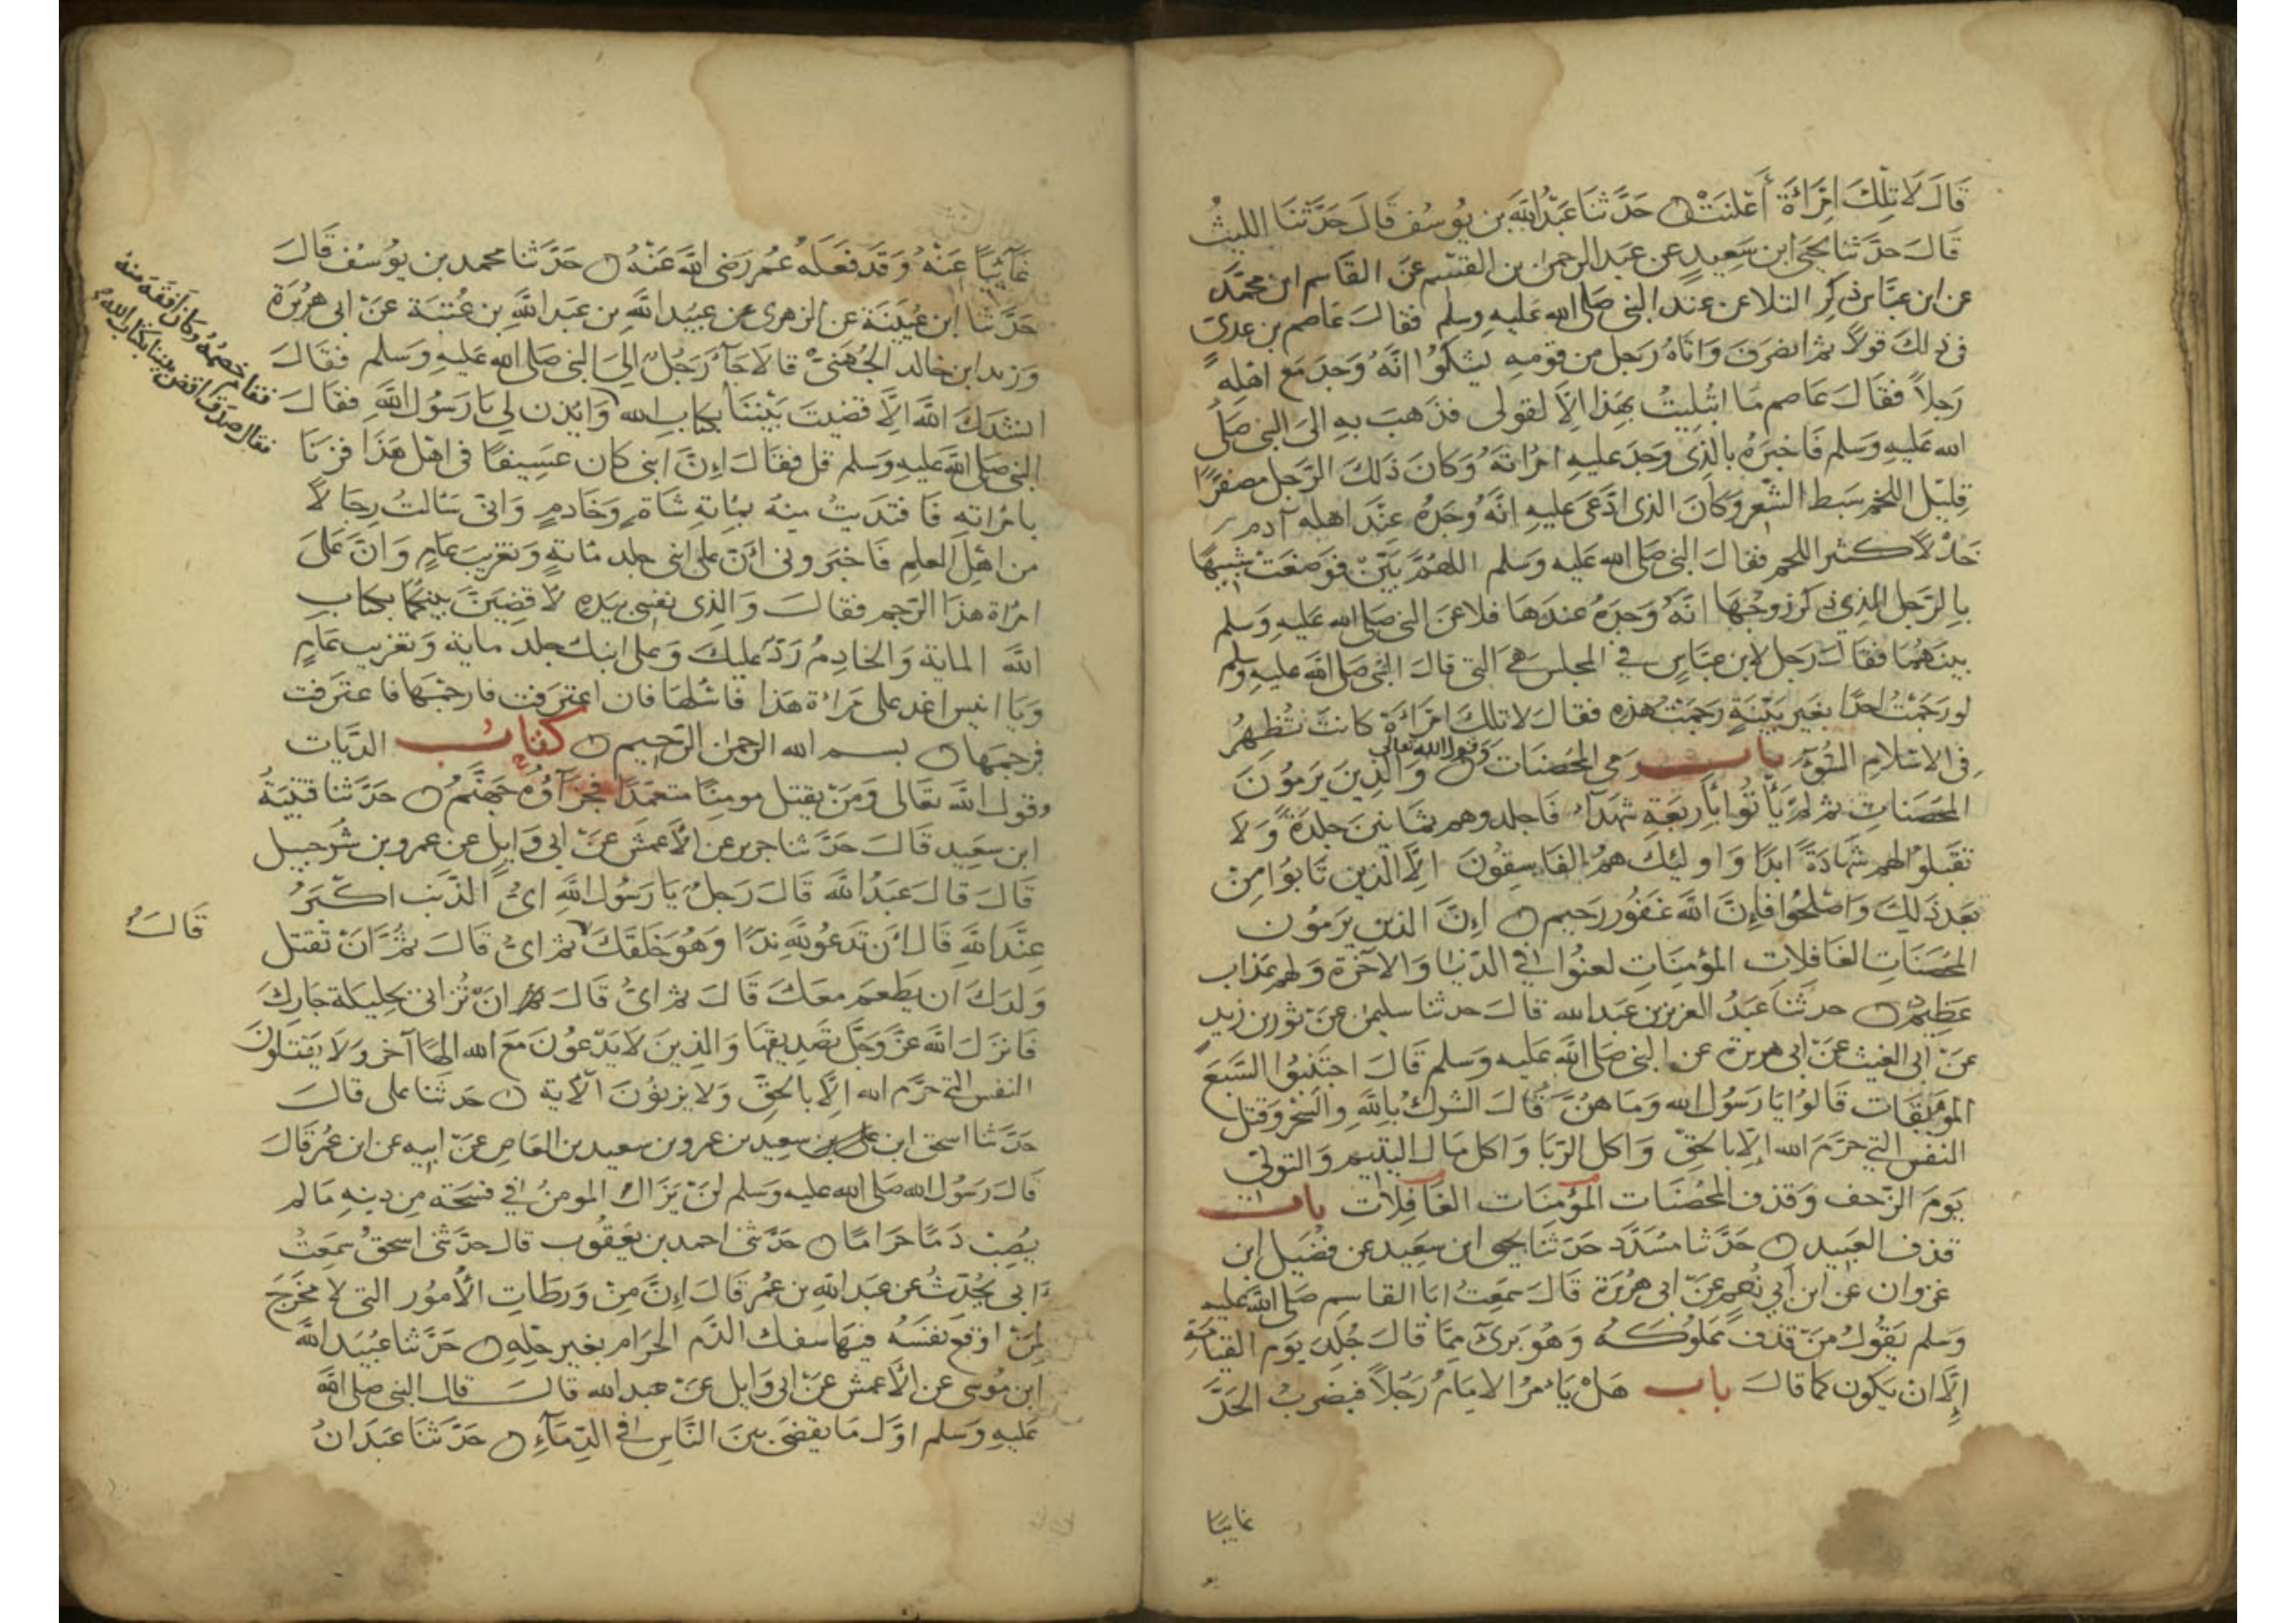 قَالَ لَا تِلْكَ امْرَأَةٌ أَعْلَنَتْ ۝ حَدَّثَنَا عَبْدُ اللهِ بن يُوسُف قَالَ حَدَّثَنَا الليثُ
قَالَ حَدَّثَنَا يحيَى ابن سَعِيدٍ عن عبد الرحمن بن القسم عَن القَاسِم ابن محمَّد
عن ابن عبَّاس ذكر التلاعن عند النبي صَلى الله عَليهِ وسلم فقالَ عَاصم بن عدي
في ذلكَ قولاً ثم انصَرفَ وَاتاهُ رَجل من قومهِ يَشكُوا انَّهُ وَجدَ مَع اهْلِهِ
رَجلاً فقالَ عَاصم مَا ابْتُلِيتُ بهَذا الاَّ لقولي فذهبَ بهِ الىَ النبي صَلى
الله عَليهِ وَسلم فَاخبرَهُ بالذِي وَجدَ عليهِ امْرَاتَهُ وَكانَ ذَلكَ الرَّجل مصفرًّا
قليْل اللحْم سَبط الشَّعر وكانَ الذى ادَّعَى عليهِ انَّهُ وَجدَهُ عنْدَ اهلهِ آدم
خَدْلاً كثير اللحم فقالَ النبي صَلى الله عَليه وَسلم اللهُمَّ بَيِّنْ فوَضعَتْ شبيهًا
بالرَّجل الذي ذكر زوجُهَا انَّهُ وَجدَهُ عندَهَا فلاعن النبي صَلى الله عَليهِ وَسلم
بينهُمَا فقالَ رَجل لابن عبَّاسٍ في المجلس هيَ التي قالَ النبي صَلى الله عليهِ وسلم
لو رَجَمْتُ احدًا بغير بَيّنَةٍ رَجَمْتُ هَذِهِ فقالَ لا تلكَ امْرَأةٌ كانَتْ تُظهِرُ
في الاسْلامِ السُّوءَ باب رَمي المحْصَنات وَقول الله تعالى وَالَّذينَ يَرمُونَ
المحْصَناتِ ثم لمْ يَأْتُوا بأرْبَعَةِ شهَدَاءَ فَاجلدوهم ثمَانينَ جَلدَةً وَلا
تقبَلوُا لهم شهَادَةً ابدًا وَاوليكَ همُ الفاسِقُونَ الاَّ الذين تَابُوا مِنْ
بَعْد ذَلِكَ وَاصْلحُوا فإنَّ اللهَ غَفُور رَحِيم ۝ اِنَّ الذين يَرمُون
المحْصَنَاتِ الغَافلاتِ المؤمِنَاتِ لعنُوا في الدّنيَا وَالاخرَة وَلهم عَذاب
عَظِيمٌ ۝ حدثَنَا عَبدُ العزيز بن عبد الله قالَ حدثنا سليمن عن ثور بن زيد
عَن ابي الغيث عَن ابي هريرة عن النبي صَلى الله عَليه وَسلم قَالَ اجتَنِبُوا السَّبعَ
الموبقَات قَالوُا يَا رَسُول الله وَمَا هنَّ قَالَ الشركُ باللهِ والسِّحرُ وَقتل
النفس التي حَرَّمَ الله الاَّ بالحَقِّ وَاكل الرّبَا وَاكل مَال اليتيم وَالتولّي
يَوْمَ الزَّحف وَقذف المحْصَنات المؤمنَات الغَافِلات باب
قذف العَبيد ۝ حَدَّثنا مسَدَّد حَدثنَا يحيى ابن سعِيد عن فُضَيل ابن
غزوان عن ابن ابي نُعم عَن ابي هرُيرَة قَالَ سَمعتُ ابَا القاسِم صَلى الله عَليه
وَسلم يَقُولُ مَنْ قذفَ مَملوُكهُ وَهُوَ بَريٌ ممَّا قالَ جُلِدَ يَوم القِيامَةِ
إلَّا ان يَكون كما قالَ باب هَلْ يَامُرُ الامَامُ رَجُلاً فيَضربُ الحَدَّ
غايبًا
غَائبًا عَنْهُ وَقد فعَلهُ عُمر رَضي الله عَنهُ ۝ حَدَّثنا محمد بن يوُسُف قالَ
حَدَّثنا ابن عُيَيْنَة عن الزهرى عن عبيد الله بن عَبد الله بن عُتبَة عَن ابي هريرَة
وَزيد ابن خالد الجُهَنيّ قالا جَاءَ رَجُلٌ الىَ النبي صَلى الله عَليهِ وَسَلم فقالَ
انشدكَ اللهَ الاَّ قضيتَ بَيْننَا بكتابِ الله وَايذن لي يَا رَسُول اللهِ فقالَ
فقام خصمُهُ وكانَ افقهَ منهُ
فقال صدق اقض بيننا بكتاب الله
النبي صَلى الله عَليه وَسَلم قل فقالَ اِنَّ ابني كان عَسِيفًا في اهْل هَذَا فزنَا
بامراته فَافتدَيتُ منهُ بمائةِ شاةٍ وَخَادِمٍ وَاني سَالتُ رجَالاً
من اهْل العلم فَاخبَروني انَّ على ابني جلد مائةٍ وَتغريبَ عَامٍ وَانَّ عَلىَ
امراة هذَا الرَّجم فقالَ وَالذي نفسي بيَدِهِ لاَقضِيَنَّ بينكمَا بكتابِ
الله الماية وَالخادِمُ رَدّ عَليكَ وَعلى ابنك جلد ماية وَتغريب عَامٍ
وَيَا انيس اغد على مَراةِ هَذا فاسْئلهَا فان اعترفت فارجمْهَا فاعترفت
فرجمَهَا ۝ بسم الله الرحمن الرَّحيم ۝ كتاب الدِّيَات
وقول الله تعَالى وَمَنْ يقتل مومنًا متعمّدًا فجزَآؤُهُ جَهنّمُ ۝ حَدَّثنا قتيْبَةُ
ابن سعيد قالَ حَدَّثنا جرير عن الأعمَش عَن ابي وَايلٍ عن عمرو بن شُرحبيل
قَالَ قالَ عَبدُ الله قالَ رَجلٌ يَا رَسُول اللهِ ايُّ الذّنب اكبَرُ
عنْدَ اللهِ قالَ انْ تدعُو للهِ ندًّا وَهُوَ خَلقَكَ ثم ايُّ قالَ ثمَّ انْ تقتل
قَالَ
وَلدَكَ ان يَطعم معَكَ قالَ ثم ايُّ قالَ ثم انْ تُزاني بحليلة جَاركَ
فانزلَ الله عَزَّ وَجلَّ تصْديقهَا وَالذينَ لا يَدْعُونَ مَعَ الله الهًا آخر وَلا يَقتلونَ
النفس التي حَرَّم الله الاَّ بالحَقِّ وَلا يزنُونَ الآية ۝ حَدثنا على قالَ
حَدَّثنا اسحق ابن سعِيد بن عمرو بن سعيد بن العاصِ عَن ابيه عن ابن عُمر قالَ
قالَ رَسُول الله صَلى الله عَليه وَسلم لنْ يَزالَ المومنُ في فسْحَة مِن دينهِ مَا لم
يصُبْ دَمًا حَرامًا ۝ حَدَّثني احمد بن يَعقوُب قال حدَّثني اسحقُ سمعْتُ
ابي يحُدّثُ عن عَبد الله بن عُمر قالَ اِنَّ مِنْ وَرطَاتِ الأمُور التي لا مخْرَجَ
لِمَنْ اوقعَ نفسَهُ فيهَا سفك الدَّم الحَرام بغير حلِّهِ ۝ حَدَّثنا عُبَيد الله
ابن مُوسى عن الأعمش عَن ابي وَايل عَن عبد الله قالَ قال النبي صَلى الله
عَليهِ وَسلم اوَّل مَا يُقضَى بينَ النَّاسِ في الدِّمَآءِ ۝ حَدَّثنَا عَبدَانُ